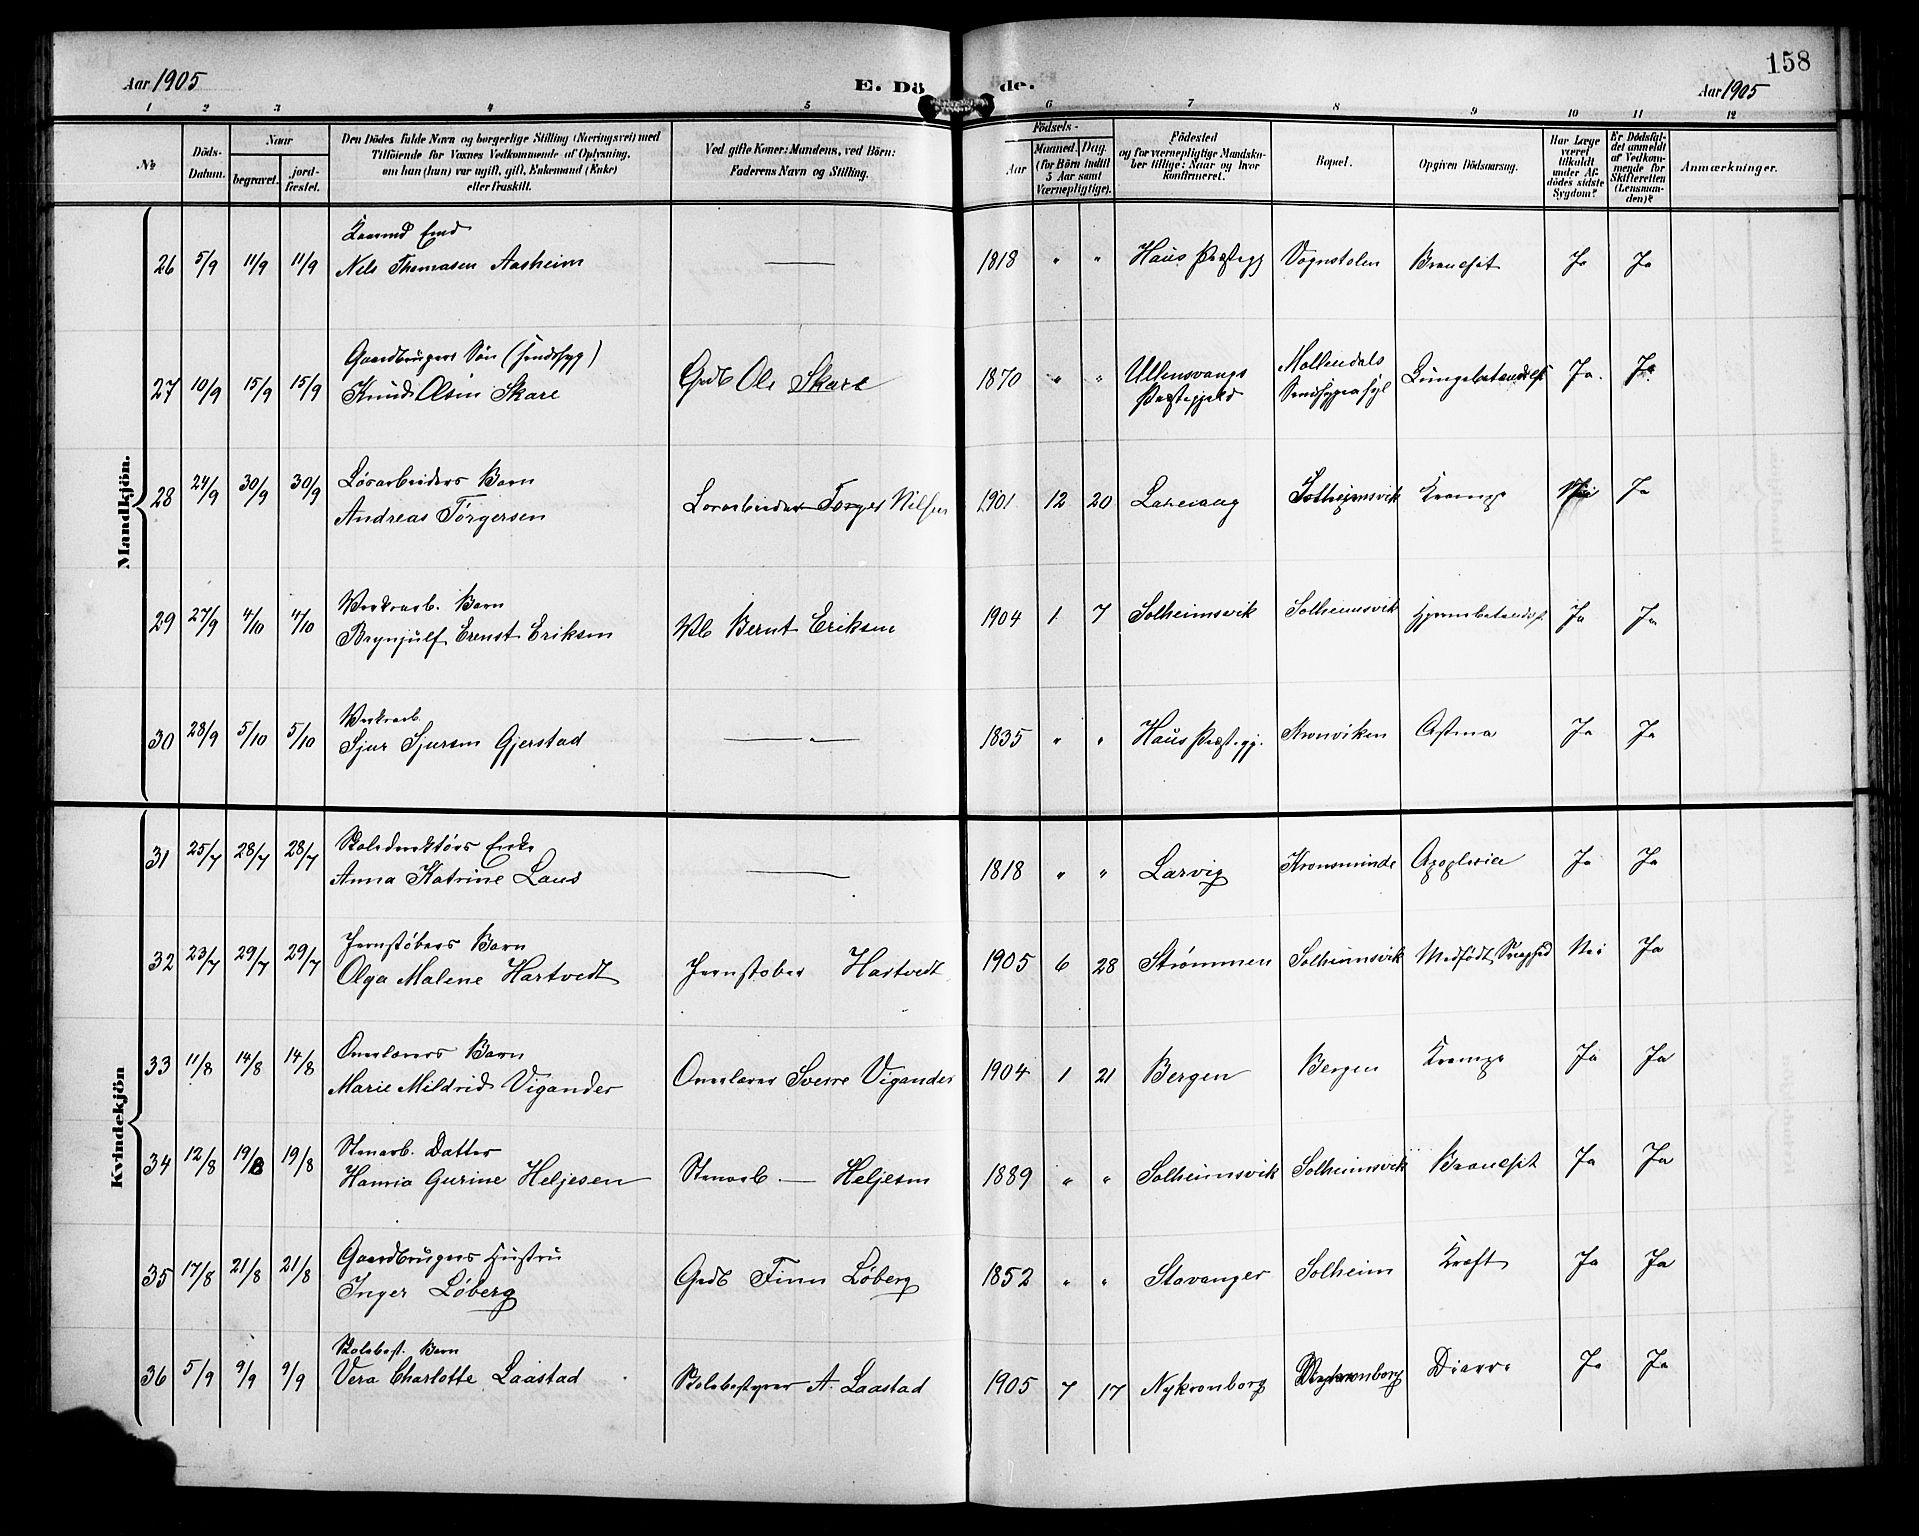 Aar 1905
E. Dö de.
158
Aar 1905
1 2 3 4 5 6 7 8 9 10 11 12
No
Döds-Datum.
Naar
begravet.
jordfæstet.
Den Dödes fulde Navn og borgerlige Stilling (Næringsvei) med
Tilföiende for Voxnes Vedkommende af Oplysning,
om han (hun) var ugift, gift, Enkemand (Enke)
eller fraskilt.
Ved gifte Koner: Mandens, ved Börn:
Faderens Navn og Stilling.
Födsels-
Aar
Maaned. Dag.
(for Börn indtil
5 Aar samt
Værnepligtige).
Födested
og for værnepligtige Mandska-
ber tillige: Naar og hvor
konfirmeret.
Bopæl.
Opgiven Dödsaarsag.
Har Læge
været
tilkaldt
under Af-
dödes sidste
Sygdom?
Er Dödsfal-
det anmeldt
af Vedkom-
mende for
Skifteretten
(Lensman-
den)?
Anmærkninger.
Mandkjön.
26 5/9 11/9 11/9 Nels Thomasen Aasheim — 1818 " " Haus Præstegj Vognstolen Broncfit Ja Ja
Gaardbrugers Sön (sindssyg)
27 10/9 15/9 15/9 Knud Olsen Skare Grdb Ole Skare 1870 " " Ullensvangs Præstegjeld Møllendals Sindssygeasyl Lungebetændelse Ja. Ja
Løsarbeiders Barn
28 24/9 30/9 30/9 Andreas Torgersen Løsarbeider Torger Nilsen 1901 12 20 Laxevaag Solheimsvik Krampe Nei Ja
Verksarb. Barn
29 27/9 4/10 4/10 Brynjulf Ernst Eriksen Vb Bernt Eriksen 1904 1 7 Solheimsvik Solheimsvik Hjernebetændelse Ja Ja
Verksarb.
30 28/9 5/10 5/10 Sjur Sjursen Gjerstad — " — 1835 " " Haus Præstegj. Kronviken Astma Ja Ja
Kvindekjön
Skoledirektørs Enke
31 25/7 28/7 28/7 Anna Katrine Laus — 1818 " " Larvig Kronsminde Apoplexia Ja Ja
Jernstøbers Barn
32 23/7 29/7 29/7 Olga Malene Hartvedt Jernstøber Hartvedt 1905 6 28 Strømmen Solheimsvik Medfödt Svaghed Nei Ja
Overlærers Barn
33 11/8 14/8 14/8 Marie Mildrid Vigander Overlærer Sverre Vigander 1904 1 21 Bergen Bergen Krampe Ja Ja
Stenarb. Datter
34 12/8 19/8 19/8 Hanna Gurine Heljesen Stenarb — Heljesen 1889 " " Solheimsvik Solheimsvik Broncfit Ja Ja
Gaardbrugers Hustru
35 17/8 21/8 21/8 Inger Løberg Grdb Finn Løberg 1852 " " Stavanger Solheim Kræft Ja Ja
Skolebest. Barn
36 5/9 9/9 9/9 Vera Charlotte Laastad Skolebestyrer A. Laastad 1905 7 17 Nykronborg Nykronborg Diarre Ja Ja